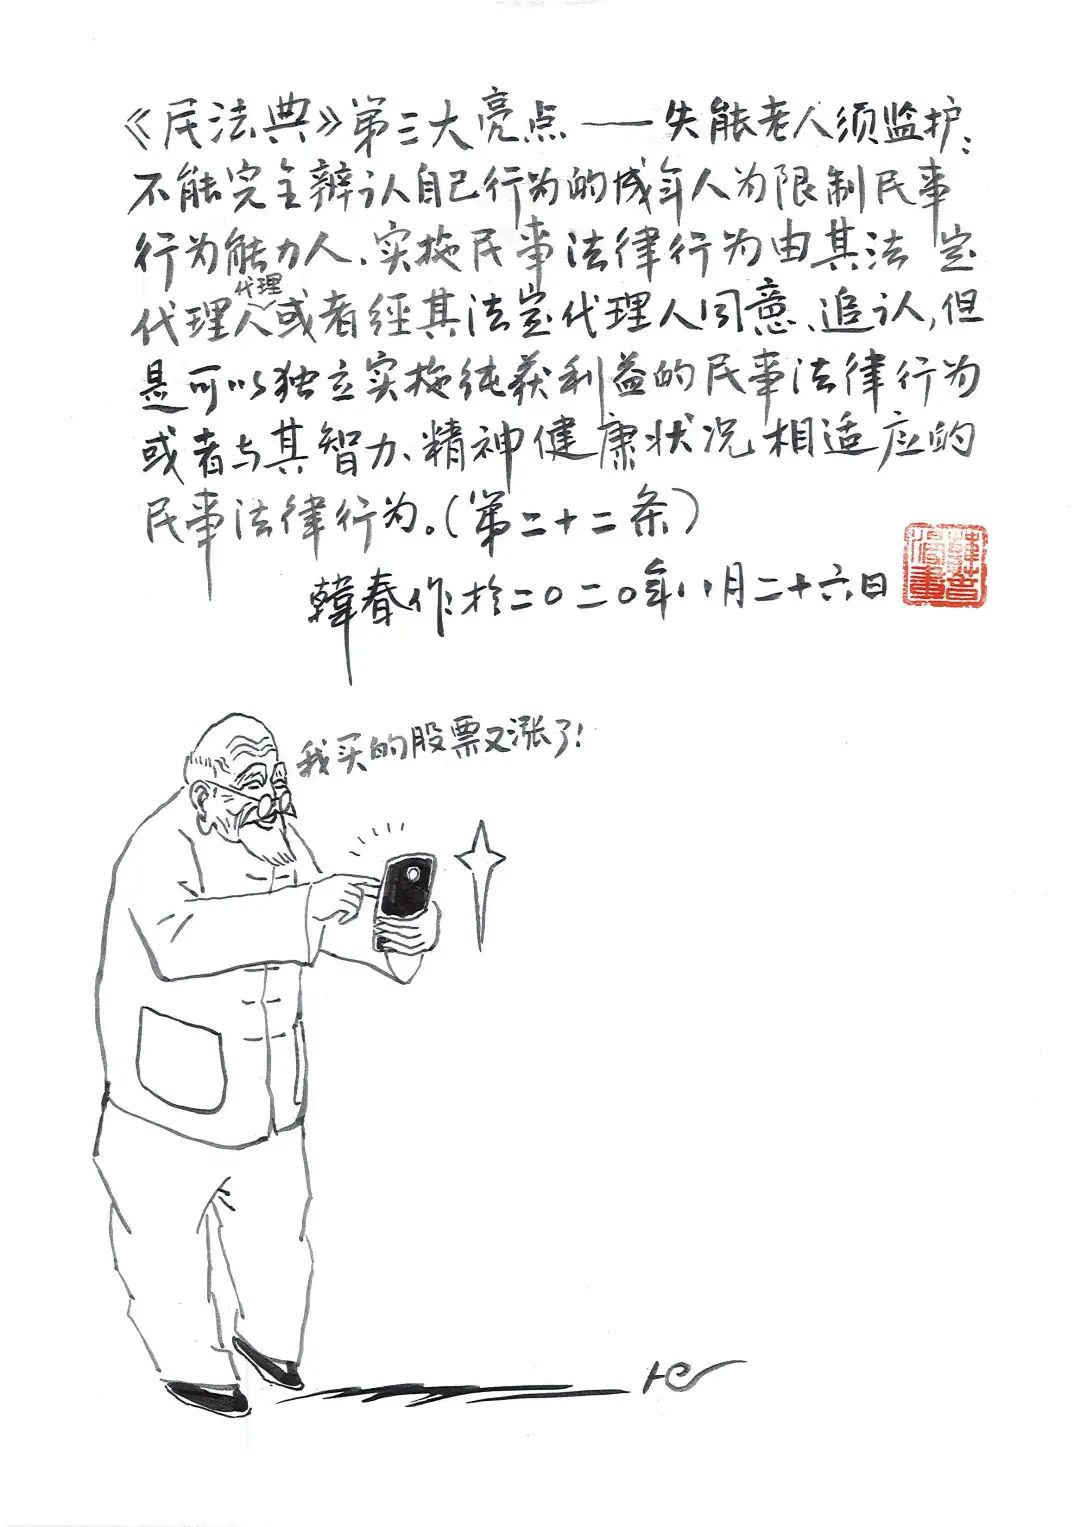 《民法典》第三大亮点——失能老人须监护：
不能完全辨认自己行为的成年人为限制民事
行为能力人、实施民事法律行为由其法定
代理人代理或者經其法定代理人同意、追认,但
是可以独立实施纯获利益的民事法律行为
或者与其智力、精神健康状况相适应的
民事法律行为。(第二十二条)
韓春作於二〇二〇年八月二十六日
我买的股票又涨了!
HC